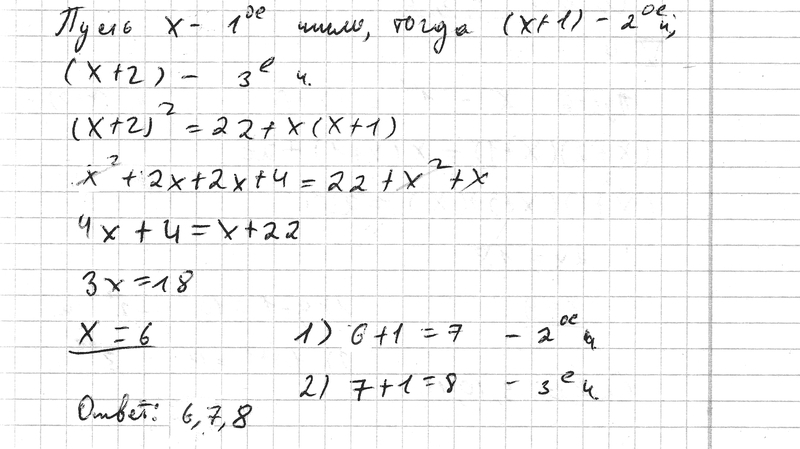 Пусть x - 1ое число, тогда (x+1) - 2ое ч,
(x+2) - 3е ч.
(x+2)² = 22 + x(x+1)
x² + 2x + 2x + 4 = 22 + x² + x
4x + 4 = x + 22
3x = 18
x = 6 1) 6+1 = 7 - 2ое ч
2) 7+1 = 8 - 3е ч.
Ответ: 6, 7, 8